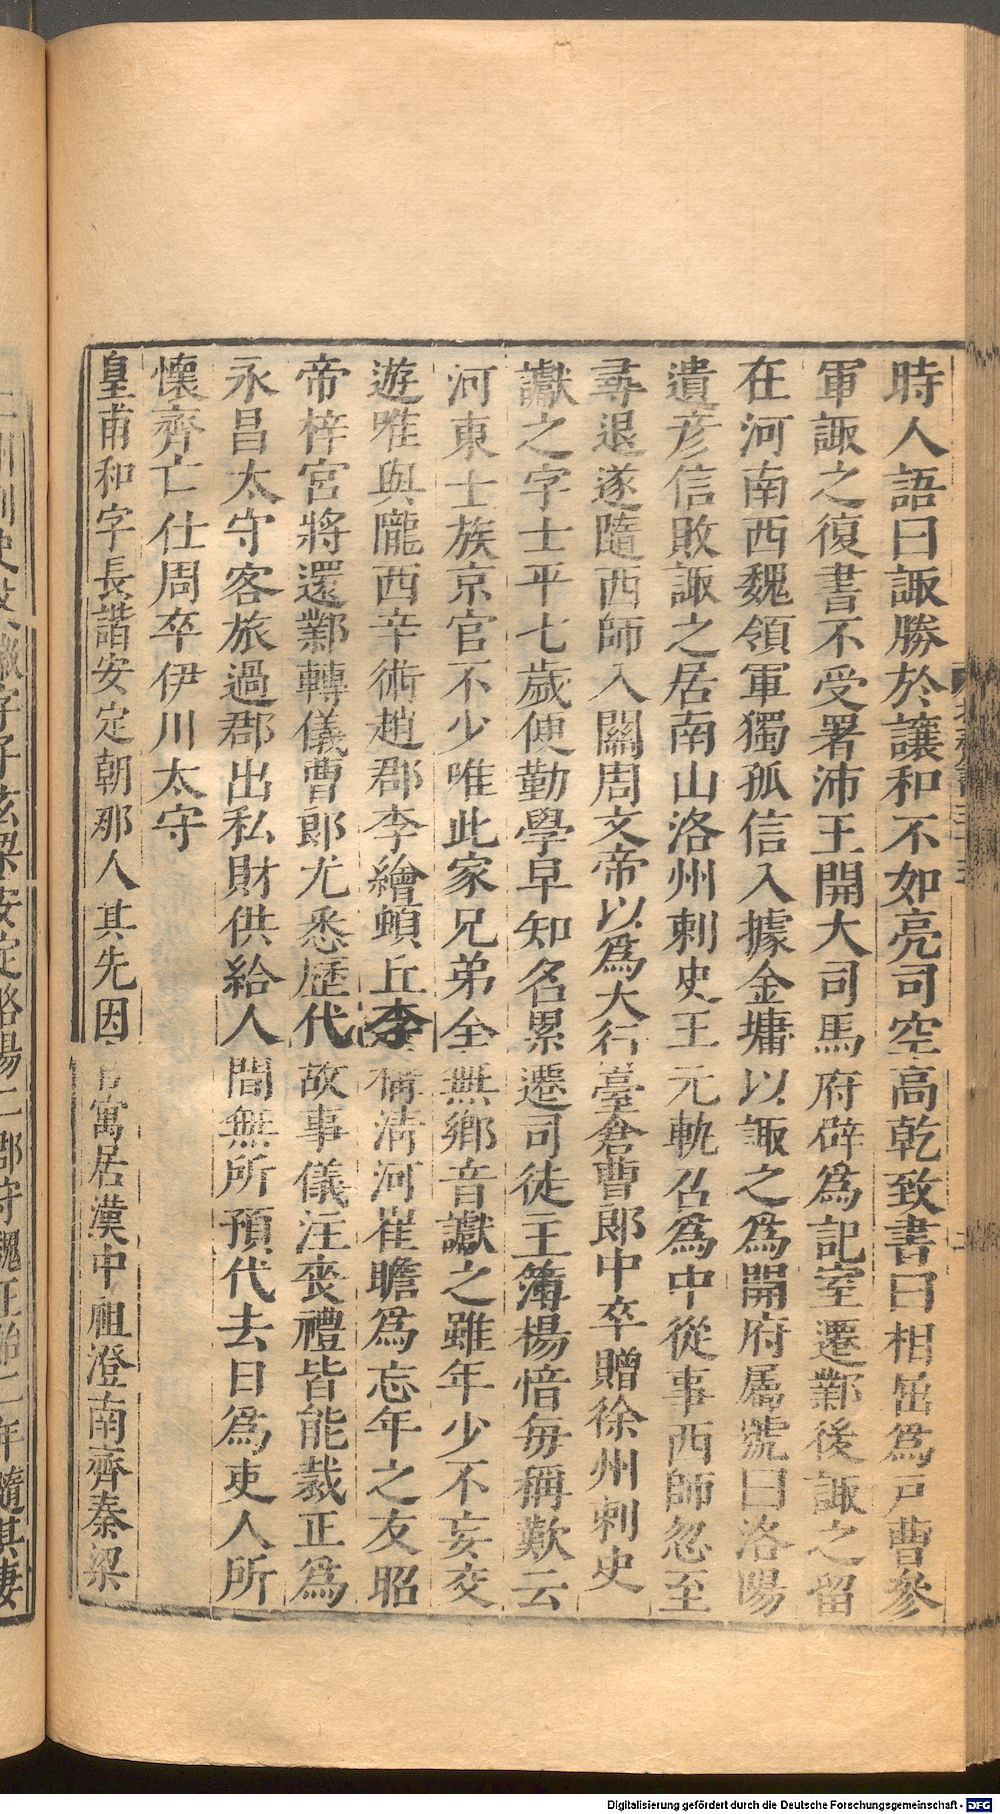 時人語曰諏勝於讓和不如亮司空高乾致書曰相屈爲戸曹參
軍諏之復書不受署沛王開大司馬府辟爲記室遷鄴後諏之留
在河南西魏領軍獨孤信入據金墉以諏之爲開府屬號曰洛陽
遺彦信敗諏之居南山洛州刺史王元軌召爲中從事西師忽至
尋退遂隨西師入關周文帝以爲大行臺倉曹郎中卒贈徐州刺史
讞之字士平七歲便勤學早知名累遷司徒主簿楊愔每稱歎云
河東士族京官不少唯此家兄弟全無鄉音讞之雖年少不妄交
遊唯與隴西辛術趙郡李繪頓丘李構清河崔瞻爲忘年之友昭
帝梓宮將還鄴轉儀曹郎尤悉歷代故事儀注喪禮皆能裁正爲
永昌太守客旅過郡出私財供給人間無所預代去日爲吏人所
懷齊亡仕周卒伊川太守
皇甫和字長諧安定朝那人其先因官寓居漢中祖澄南齊秦梁
安定略陽二郡守魏正始二年隨其妻
Digitalisierung gefördert durch die Deutsche Forschungsgemeinschaft - DFG